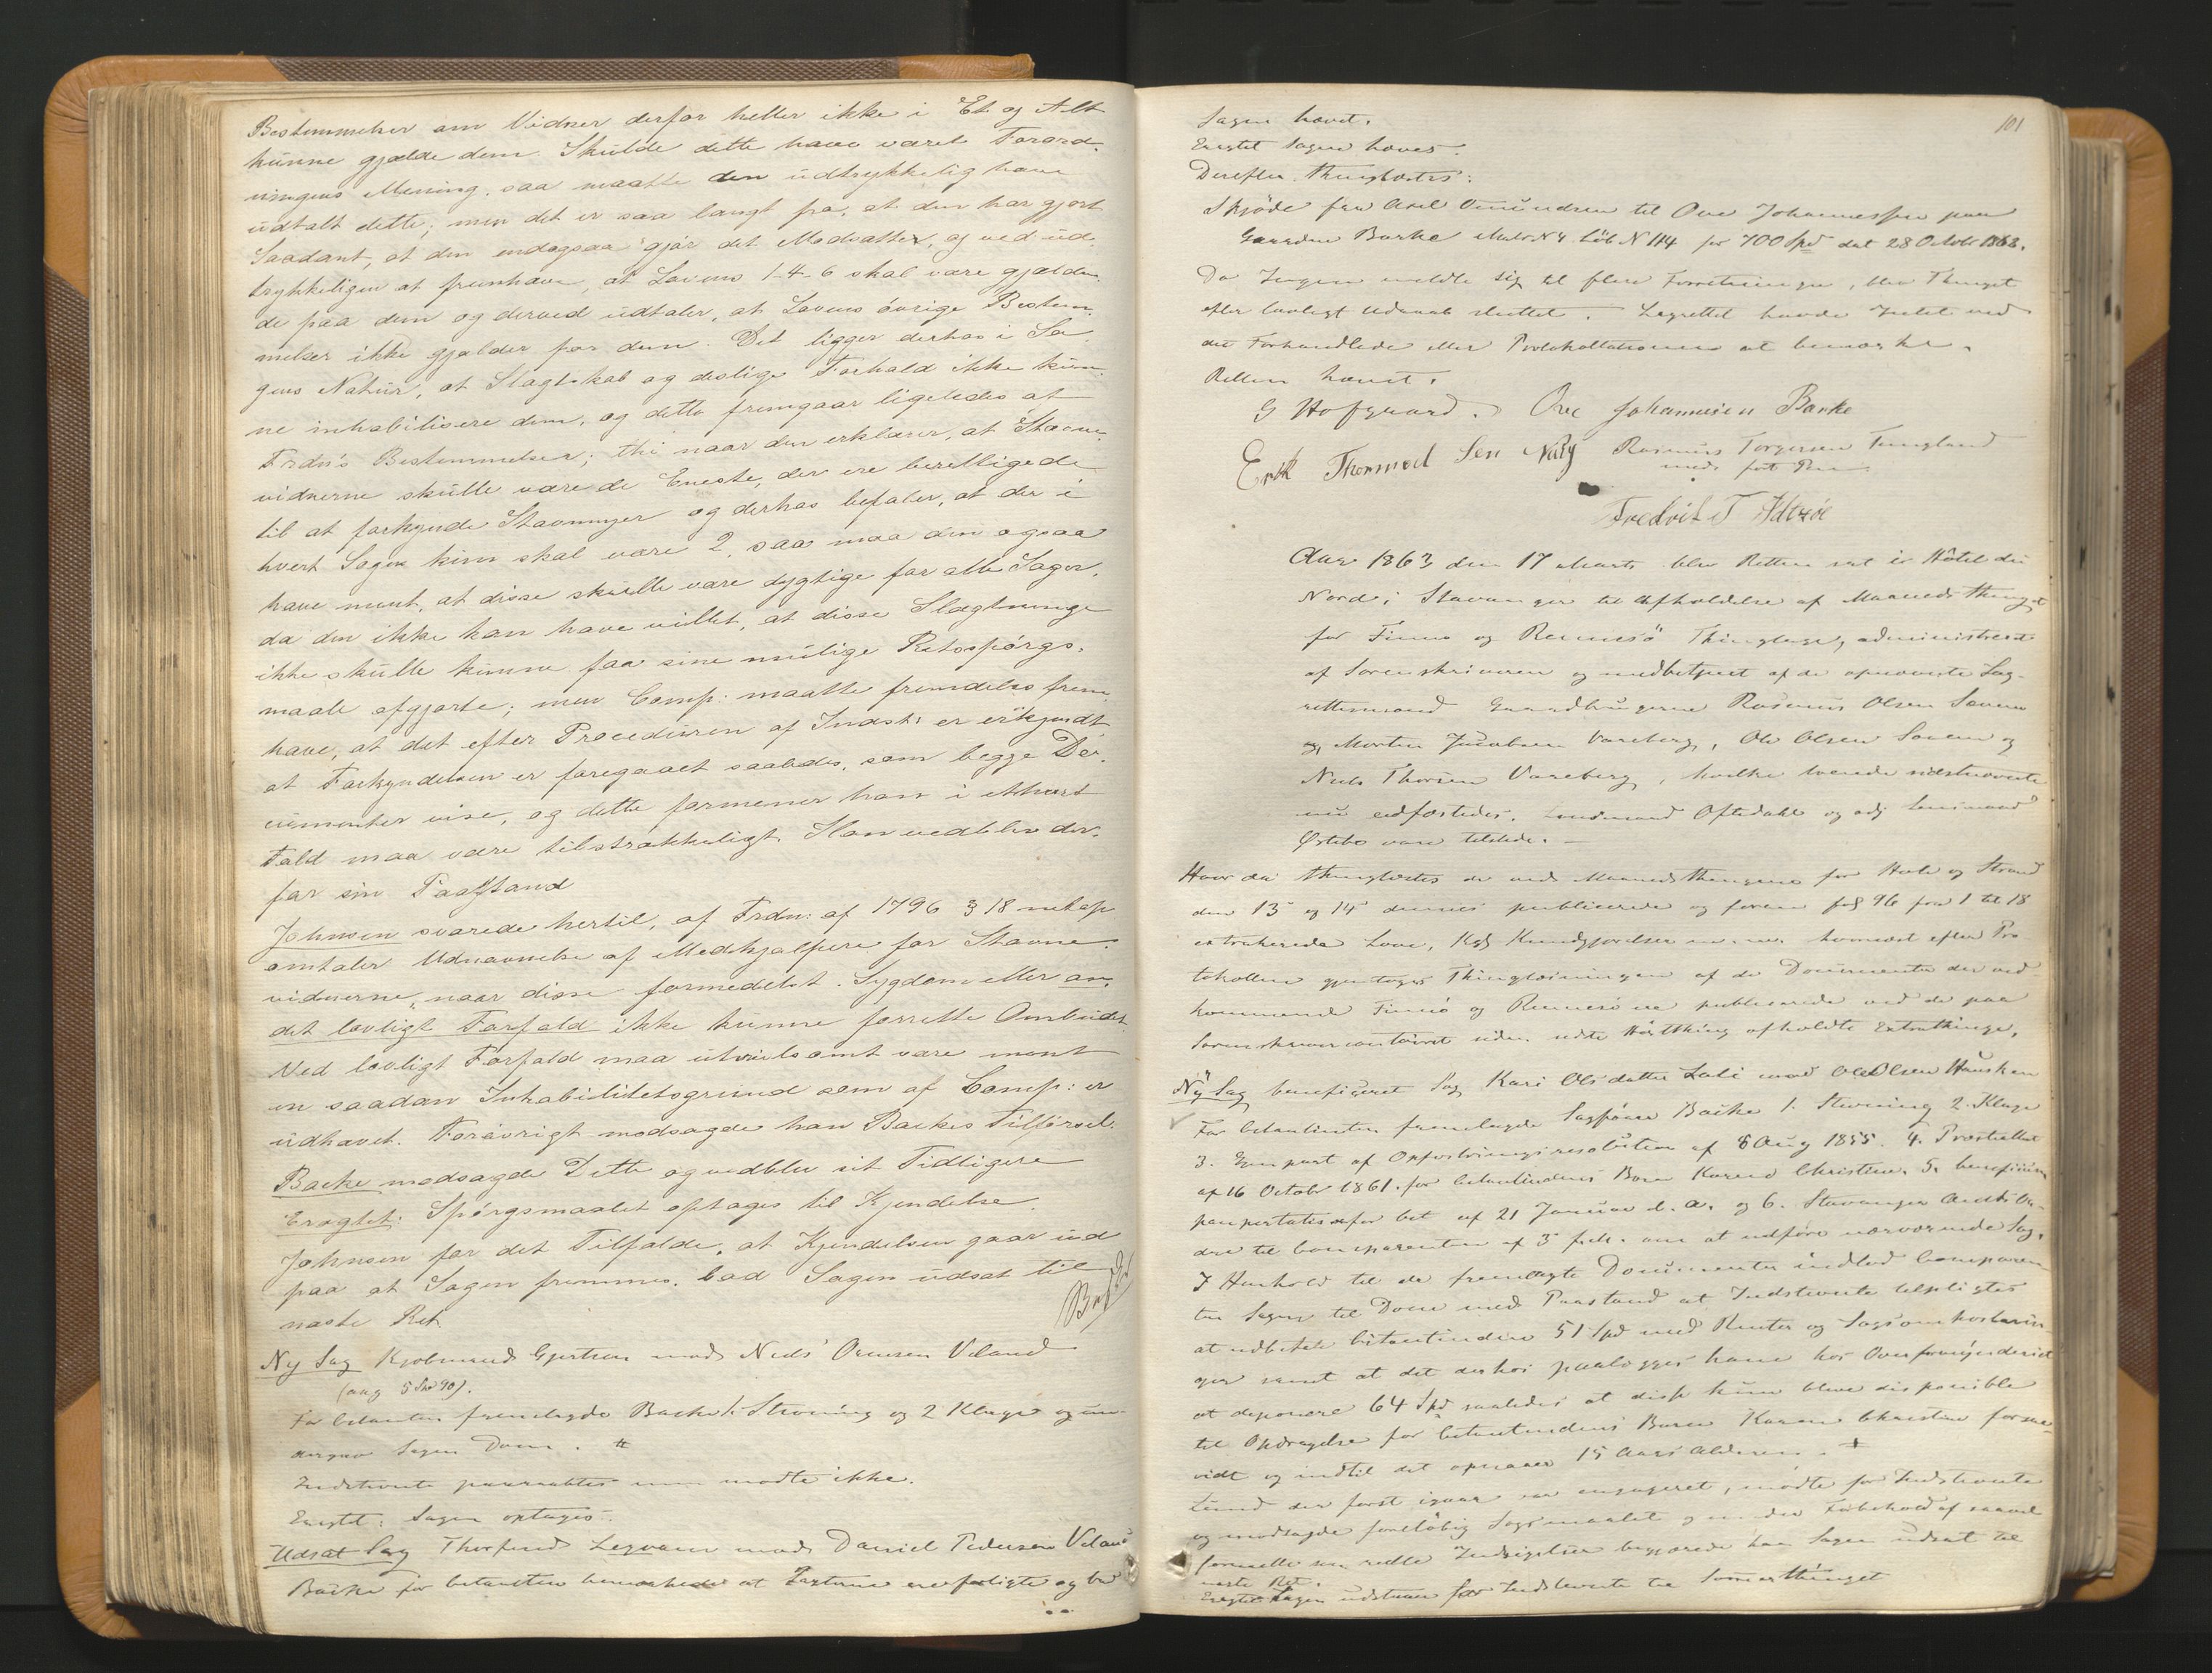 Bestemmelser om Vidner derfor heller ikke i Et og Alt
kunne gjælde dem. Skulde dette have været Forord-
ningens Mening, saa maatte den udtrykkelig have
udtalt dette; men det er saa langt fra, at den har gjort
Saadant, at den endogsaa gjør det Modsatte, og ved ud-
trykkeligen at fremhæve, at Lovens 1-4-6 skal være gjælden-
de paa dem og derved udtaler, at Lovens øvrige Bestem-
melser ikke gjælder for dem. Det ligger derhos i Sa-
gens Natur, at Slagtskab og deslige Forhold ikke kun-
ne inhabilisere dem, og dette fremgaar ligeledes af
Frdn's Bestemmelser; thi naar den erklærer, at Stævne-
vidnerne skulle være de Eneste, der ere berettigede
til at forkynde Stævninger og derhos befaler, at der i
hvert Sogn kun skal være 2, saa maa den ogsaa
have ment, at disse skulle være dygtige for alle Sager,
da den ikke kan have villet, at disse Slægtninge
ikke skulle kunne faa sine mulige Retsspørgs-
maale afgjorte; men Comp: maatte fremdeles frem-
have, at det efter Proceduren af Indst: er erkjendt
at Forkyndelsen er foregaaet saaledes, som begge Do-
cumenter vise, og dette formener han i ethvert
Fald maa være tilstrækkeligt. Han vedblev der-
for sin Paastand
Johnsen svarede hertil, at Frdn: af 1796 § 18 netop
omtaler Udnævnelse af Medhjælpere for Stævne-
vidnerne, naar disse formedelst Sygdom eller an-
det lovligt Forfald ikke kunne forrette Ombudet.
Ved lovligt Forfald maa utvivlsomt være ment
en saadan Inhabilitetsgrund som af Comp: er
udhævet. Forøvrigt modsagde han Backes Tilførsel.
Backe modsagde Dette og vedblev sit Tidligere
Eragtet: Spørgsmaalet optages til Kjendelse.
Johnsen for det Tilfælde, at Kjendelsen gaar ud
paa at Sagen fremmes, bad Sagen udsat til
næste Ret.
Ny Sag Kjøbmand Gjertsen mod Niels Omsen Veland
For Citanten fremlagde Backe 1. Stævning og 2 Klage og un-
dergav Sagen Dom.
Indstevnte paaraabtes men mødte ikke.
Eragtet: Sagen optages.
Udsat Sag Thorfind Legvam mod Daniel Pedersen Veland
Backe for Citanten bemærkede at Parterne ere forligte og bad
101
Sagen hævet.
Eragtet Sagen hæves.
Derefter thinglæstes:
Skjøde fra Axel Omundsen til Ove Johannessen paa
Gaarden Barke Matr N 4 Løb N 114 for 700 Spd dat 28 October 1862.
Da Ingen meldte sig til flere Forretninger, blev Thinget
efter lovligt Udraab sluttet. Lagrettet havde Intet ved
det Forhandlede eller Protokollationen at bemærke.
Retten hævet.
G Hofgaard. Ove Johannesen Barke
Erik Thormod Sen Rasmus Torgersen Tungland
Fredrik T
Aar 1863 den 17 Marts blev Retten sat i Hôtel du
Nord i Stavanger til Afholdelse af Maanedsthinget
for Finnø og Rennesø Thinglage, administreret
af Sorenskriveren og medbetjent af de opnævnte Lag-
rettemænd Gaardbrugerne Rasmus Olsen Sørenæ
og Morten Jacobsen Vareberg, Ole Olsen Sørenæ og
Niels Thorsen Vareberg, hvilke tvende sidstnævnte
nu edfæstedes. Lensmand Oftedahl og adj Lensmand
Østebø vare tilstede.
Hvor da thinglæstes de ved Maanedsthingene for Hole og Strand
den 13 og 14 dennes publicerede og foran fol 96 fra 1 til 18
extraherede Love, Kgl Kundgjørelser m. m. hvornæst efter Pro-
tokollen gjentoges Thinglæsningen af de Documenter der ved-
kommende Finnø og Rennesø ere publicerede ved de paa
Sorenskrivercontoiret siden sidste Høstthing afholdte Extrathinge.
Ny Sag beneficeret Sag Kari Olsdatter Lali mod Ole Olsen Hausken
For Citantinden fremlagde Sagfører Backe 1. Stevning 2. Klage
3. Gjenpart af Opfostringsresolution af 8 Aug 1855. 4. Præsteattest
af 16 Octobr 1861 for Citantindens Barn Karen Christine, 5. beneficium
paupertatis for Cit af 21 Januar d. A. og 6. Stavanger Amts Or-
dre til Comparenten af 3 f.M. om at udføre nærværende Sag.
I Henhold til de fremlagte Documenter indlod Comparen-
ten Sagen til Dom med Paastand at Indstevnte tilpligtes
at udbetale Citantinden 51 Spd med Renter og Sagsomkostnin-
ger samt at det derhos paalægges ham hos Overformynderiet
at deponere 64 Spd saaledes at disse kunne blive disponible
til Opdragelse for Citantindens Barn Karen Christine forsaa-
vidt og indtil det opnaaer 15 Aars Alderen.
Lund der først igaar var engageret, mødte for Indstevnte
og modsagde foreløbig Søgsmaalet og under Forbehold af saavel
formelle som reelle Indsigelser begjærede han Sagen udsat til
næste Ret.
Eragtet Sagen udstaar for Indstevnte til Sommerthinget